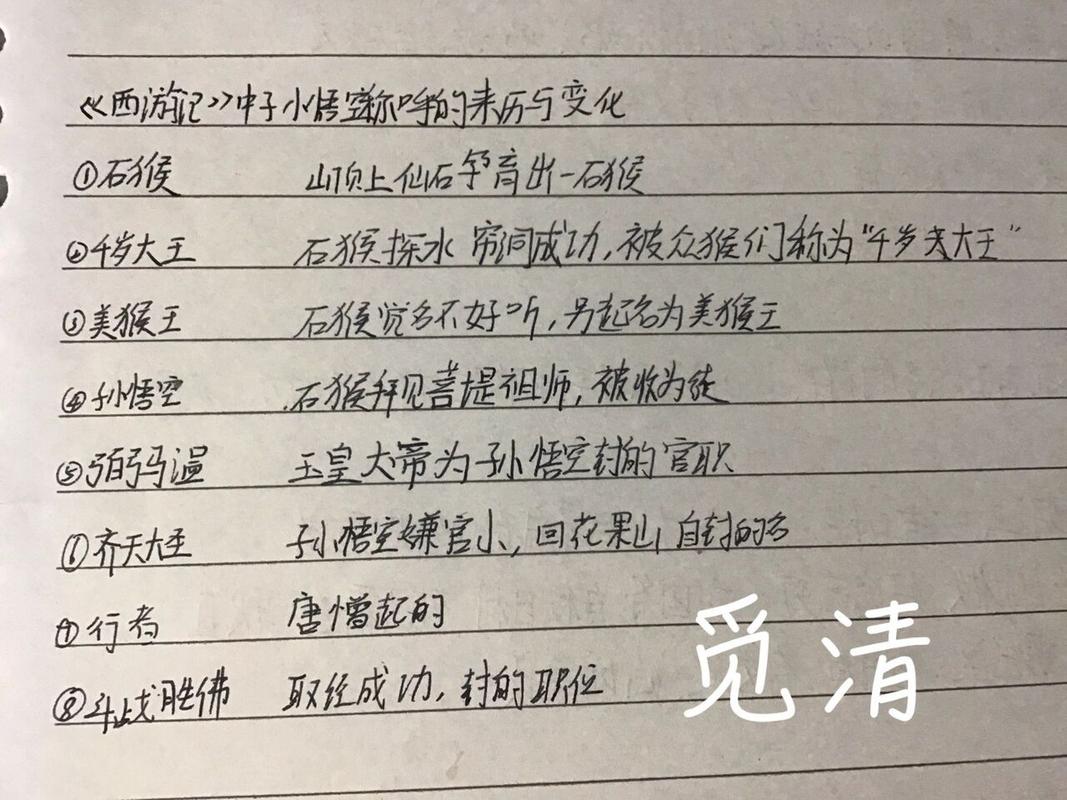 《西游记》中孙悟空称呼的来历与变化
①石猴 山顶上仙石孕育出一石猴
②千岁大王 石猴探水帘洞成功,被众猴们称为“千岁大王”
③美猴王 石猴觉名不好听,另起名为美猴王
④孙悟空 石猴拜见菩提祖师,被收为徒
⑤弼马温 玉皇大帝为孙悟空封的官职
⑥齐天大圣 孙悟空嫌官小,回花果山自封的名
⑦行者 唐憎起的
⑧斗战胜佛 取经成功,封的职位
觅清